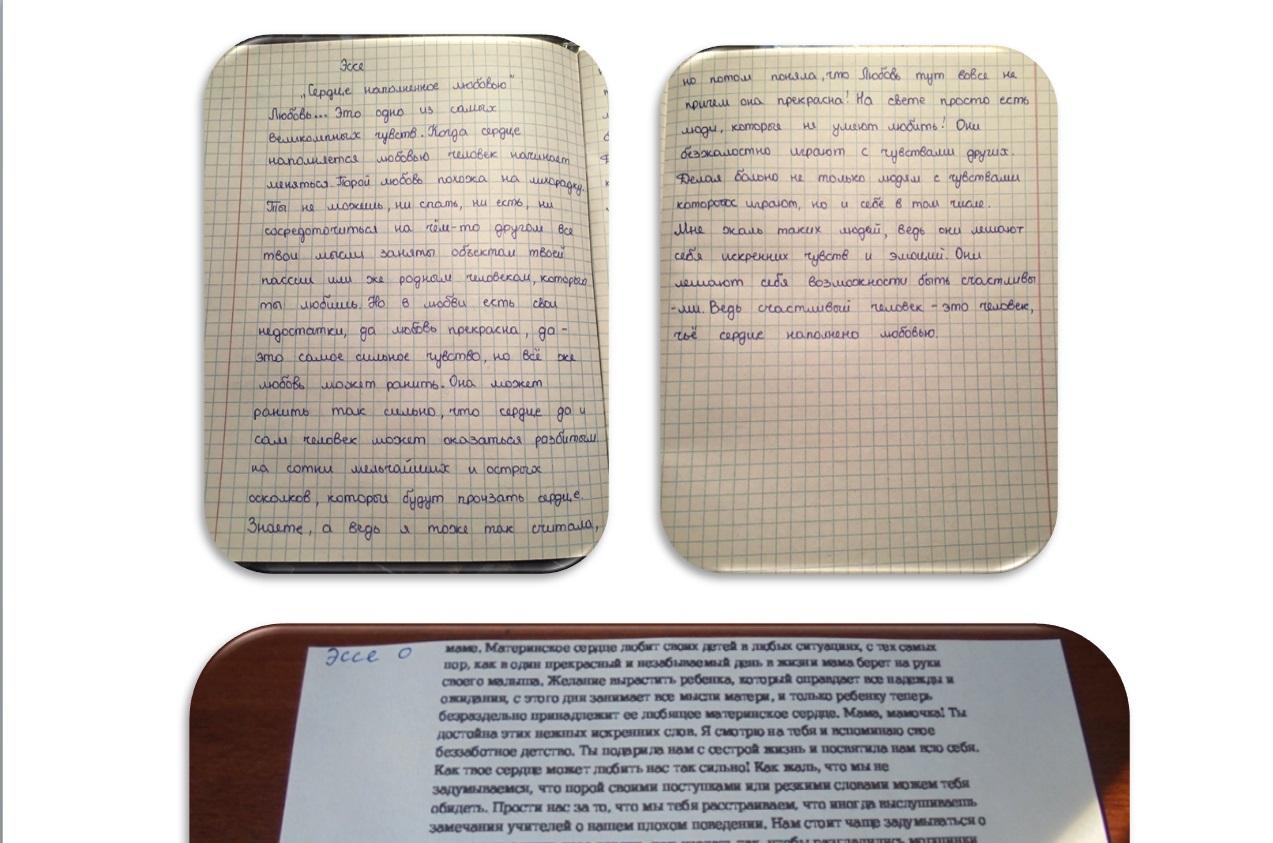 Эссе
„Сердце наполненное любовью"
Любовь... Это одно из самых
великолепных чувств. Когда сердце
наполняется любовью человек начинает
меняться. Порой любовь похожа на лихорадку.
Ты не можешь, ни спать, ни есть, ни
сосредоточиться на чём-то другом все
твои мысли заняты объектом твоей
пассии или же родным человеком, которого
ты любишь. Но в любви есть свои
недостатки, да любовь прекрасна, да -
это самое сильное чувство, но всё же
любовь может ранить. Она может
ранить так сильно, что сердце да и
сам человек может оказаться разбитым
на сотни мельчайших и острых
осколков, которые будут пронзать сердце.
Знаете, а ведь я тоже так считала,
но потом поняла, что Любовь тут вовсе не
причем она прекрасна! На свете просто есть
люди, которые не умеют любить! Они
безжалостно играют с чувствами других.
Делая больно не только людям с чувствами
которых играют, но и себе в том числе.
Мне жаль таких людей, ведь они лишают
себя искренних чувств и эмоций. Они
лишают себя возможности быть счастливы
-ми. Ведь счастливый человек - это человек,
чьё сердце наполнено любовью.
Эссе о
маме. Материнское сердце любит своих детей в любых ситуациях, с тех самых
пор, как в один прекрасный и незабываемый день в жизни мама берет на руки
своего малыша. Желание вырастить ребенка, который оправдает все надежды и
ожидания, с этого дня занимает все мысли матери, и только ребенку теперь
безраздельно принадлежит ее любящее материнское сердце. Мама, мамочка! Ты
достойна этих нежных искренних слов. Я смотрю на тебя и вспоминаю свое
беззаботное детство. Ты подарила нам с сестрой жизнь и посвятила нам всю себя.
Как твое сердце может любить нас так сильно! Как жаль, что мы не
задумываемся, что порой своими поступками или резкими словами можем тебя
обидеть. Прости нас за то, что мы тебя расстраиваем, что иногда выслушиваешь
замечания учителей о нашем плохом поведении. Нам стоит чаще задумываться о